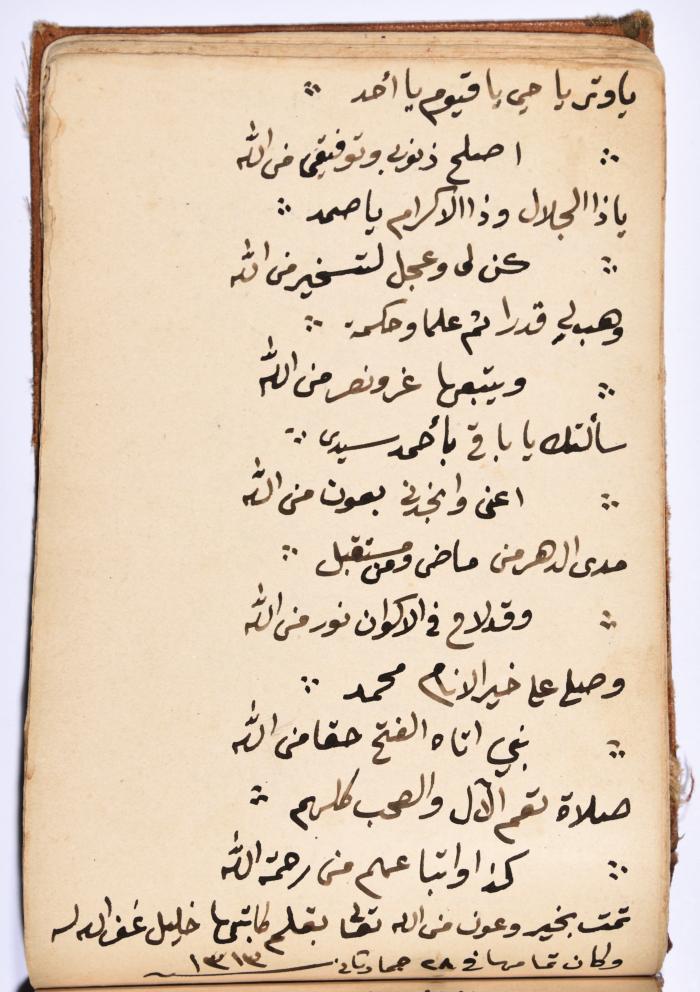 ياوتر يا حي يا قيوم يا أحد
اصلح ذنوبي وتوفيقي من الله
ياذا الجلال وذا الاكرام يا صمد
كن لي وعجل لتسخير من الله
وهب لي قدرا ثم علما وحكمة
ويتبعها عز ونصر من الله
سألتك يا باقي بأحمد سيدي
اعني وانجدني بعون من الله
مدى الدهر من ماضى ومن مستقبل
وقد لاح في الاكوان نور من الله
وصلي على خير الانام محمد
بني اتاه الفتح حقا من الله
صلاة تعم الآل والصحب كلهم
كذا واتباعهم من رحمة الله
تمت بخير وعون من الله تعالى بقلم كاتبها خليل غفر الله له
وكان تمامها في ٢٨ جماد ثاني ١٣١٣